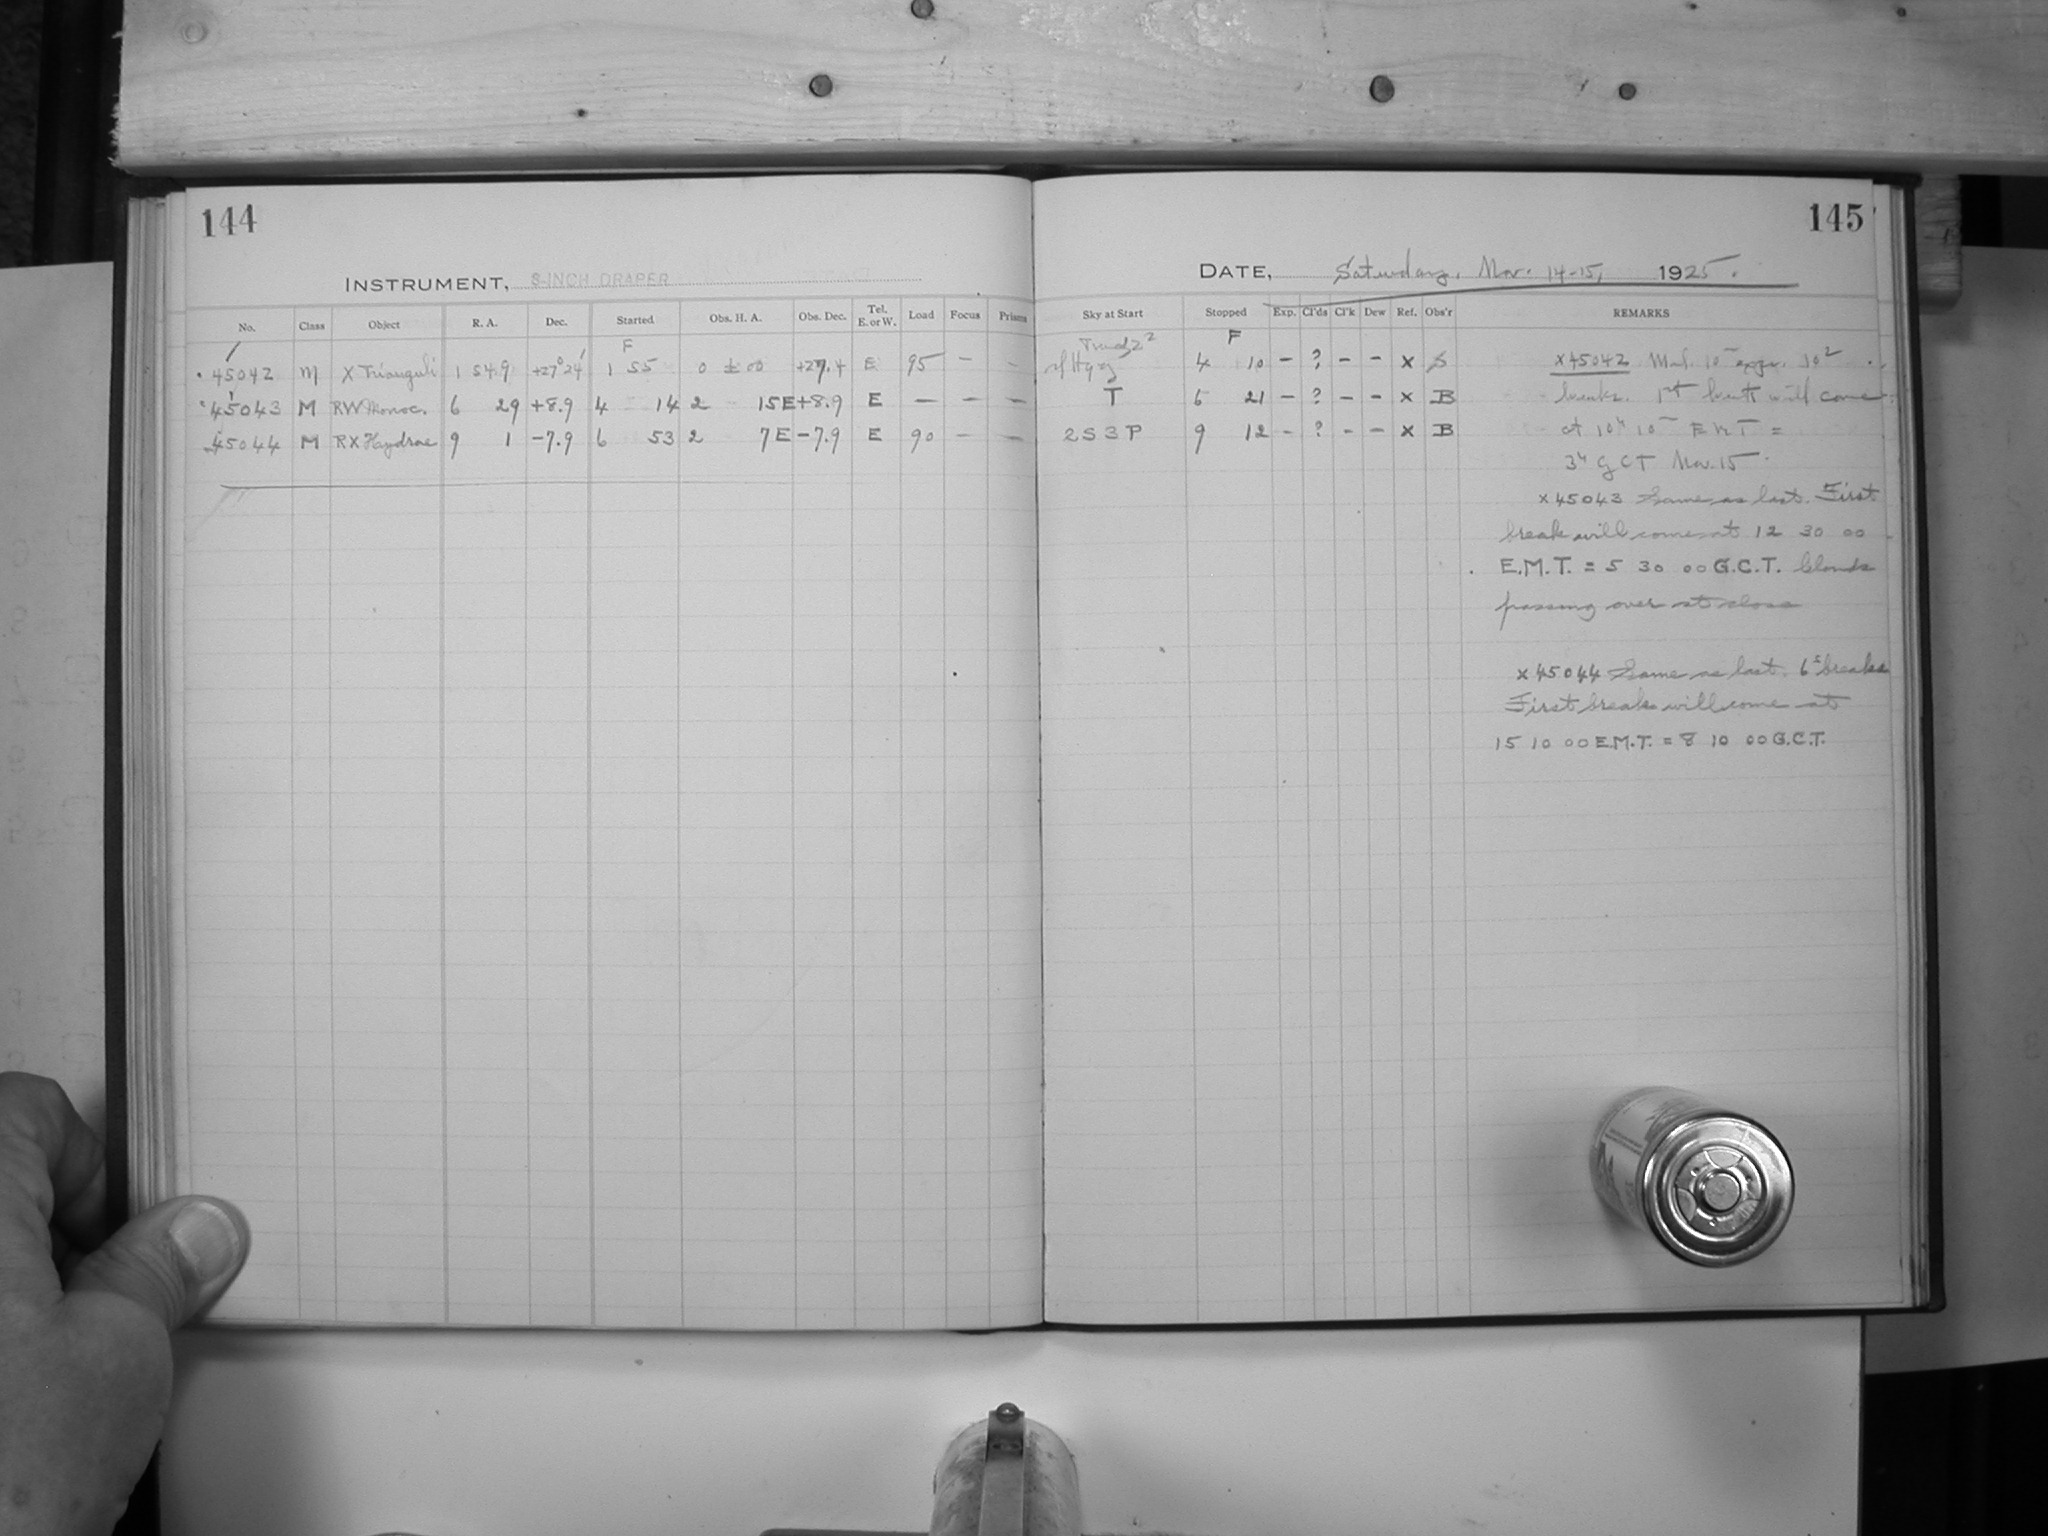 144
INSTRUMENT, 8-INCH DRAPER
No. Class Object R. A. Dec. Started Obs. H. A. Obs. Dec. Tel. E. or W. Load Focus Prisms
F
45042 M X Trianguli 1 54.9 +27°24' 1 55 0 ± 00 +27.4 E 95 – –
45043 M RW Monoc. 6 29 +8.9 4 14 2 15E +8.9 E – – –
45044 M RX Haydrae 9 1 –7.9 6 53 2 7E –7.9 E 90 – –
145
DATE, Saturday, Nov. 14-15, 1925.
Sky at Start Stopped Exp. Cl'ds Cl'k Dew Ref. Obs'r REMARKS
F
4 10 – ? – – x S
T 6 21 – ? – – x B
2S3P 9 12 – ? – – x B
x45042
breaks. 1st break will come
at 10h 10m E M T =
3h G C T Nov. 15
x45043 Same as last. First
break will come at 12 30 00
E.M.T. = 5 30 00 G.C.T. Clouds
passing over at close
x45044 Same as last. 6s breaks
First break will come at
15 10 00 E.M.T. = 8 10 00 G.C.T.